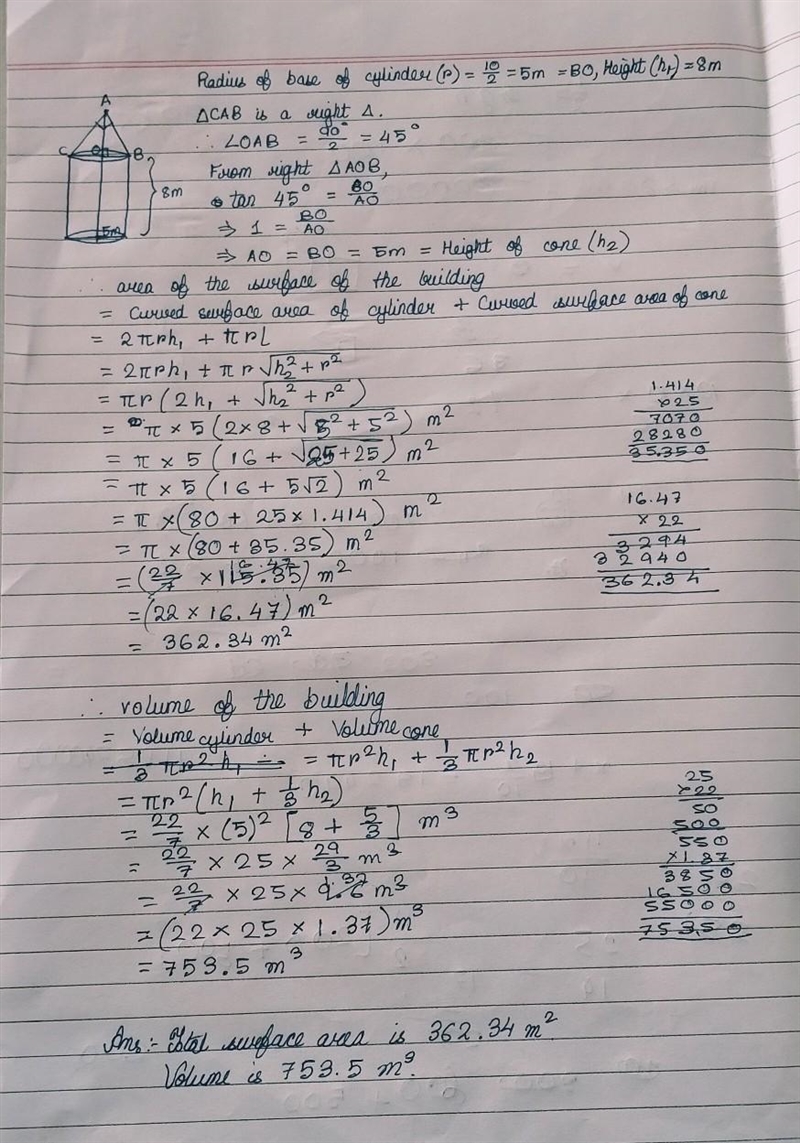 Radius of base of cylinder (r) = 10/2 = 5m = BO, Height (h₁) = 8m
A
C O B
8m
5m
ΔCAB is a right Δ.
∴ ∠OAB = 90°/2 = 45°
From right ΔAOB,
tan 45° = BO/AO
⇒ 1 = BO/AO
⇒ AO = BO = 5m = Height of cone (h₂)
∴ area of the surface of the building
= Curved surface area of cylinder + Curved surface area of cone
= 2πrh₁ + πrl
= 2πrh₁ + πr√h₂² + r²
= πr (2h₁ + √h₂² + r²)
= π × 5 (2×8 + √5² + 5²) m²
= π × 5 (16 + √25 + 25) m²
= π × 5 (16 + 5√2) m²
= π × (80 + 25 × 1.414) m²
= π × (80 + 35.35) m²
= (22/7 × 115.35) m² 16.47
= (22 × 16.47) m²
= 362.34 m²
1.414
× 25
7070
28280
35.350
16.47
× 22
3294
32940
362.34
∴ volume of the building
= Volume cylinder + Volume cone
= 1/3 πr²h₁ = πr²h₁ + 1/3 πr²h₂
= πr² (h₁ + 1/3 h₂)
= 22/7 × (5)² [8 + 5/3] m³
= 22/7 × 25 × 29/3 m³
= 22/7 × 25 × 9.6 m³ 1.37
= (22 × 25 × 1.37) m³
= 753.5 m³
25
× 22
50
500
550
× 1.37
3850
16500
55000
753.50
Ans:- Total surface area is 362.34 m²
Volume is 753.5 m³.